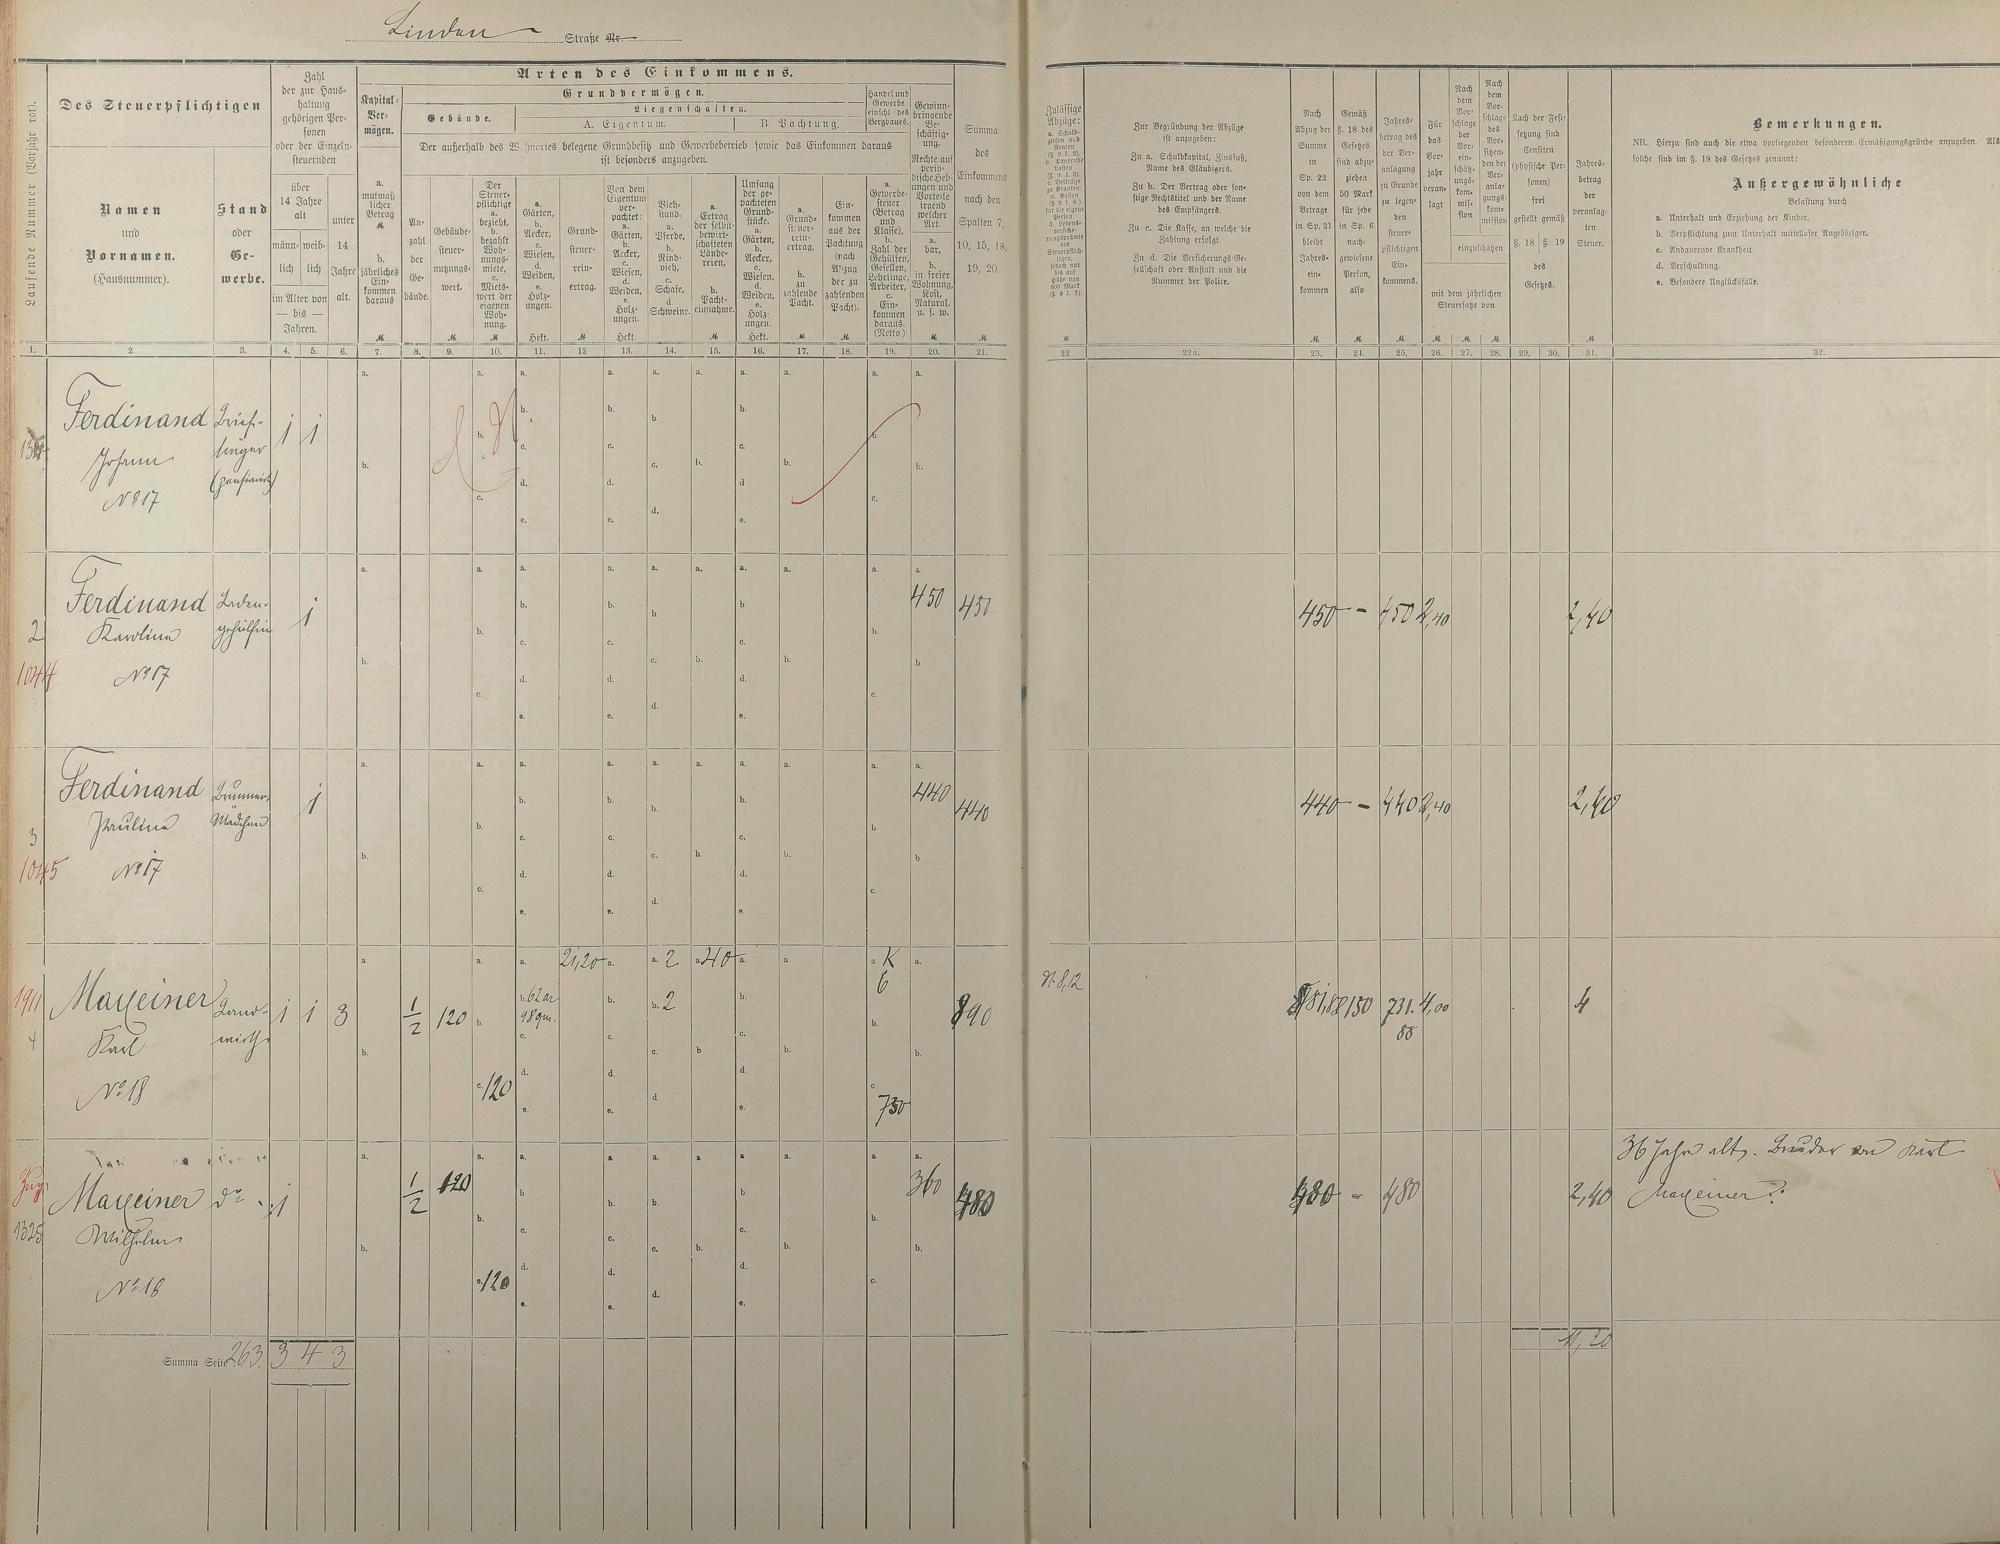 Linden Straße Nr.
Laufende Nummer (Vorjahr rot).
Des Steuerpflichtigen
Namen
und
Vornamen.
(Hausnummer).
Stand
oder
Ge-
werbe.
Zahl
der zur Haus-
haltung
gehörigen Per-
sonen
oder der Einzeln-
steuernden
über
14 Jahre
alt
männ-
lich
weib-
lich
im Alter von
— bis —
Jahren.
unter
14
Jahre
alt.
Arten des Einkommens.
Kapital-
Ver-
mögen.
a.
mutmaß-
licher
Betrag
M
b.
jährliches
Ein-
kommen
daraus
M.
Grundvermögen.
Gebäude.
Liegenschaften.
A. Eigentum.
B. Pachtung.
Der außerhalb des Wohnortes belegene Grundbesitz und Gewerbebetrieb sowie das Einkommen daraus
ist besonders anzugeben.
An-
zahl
der
Ge-
bäude.
Gebäude-
steuer-
nutzungs-
wert.
M
Der
Steuer-
pflichtige
a.
bezieht,
b.
bezahlt
Woh-
nungs-
miete,
c.
Miets-
wert der
eigenen
Woh-
nung.
M.
a.
Gärten,
b.
Aecker,
c.
Wiesen,
d.
Weiden,
e.
Holz-
ungen.
Hekt.
Grund-
steuer-
rein-
ertrag.
M
Von dem
Eigentum
ver-
pachtet:
a.
Gärten,
b.
Aecker,
c.
Wiesen,
d.
Weiden,
e.
Holz-
ungen.
Hekt.
Vieh-
stand.
a.
Pferde,
b.
Rind-
vieh,
c.
Schafe,
d.
Schweine.
a.
Ertrag
der selbst-
bewirt-
schafteten
Lände-
reien,
b.
Pacht-
einnahme.
M.
Umfang
der ge-
pachteten
Grund-
stücke.
a.
Gärten,
b.
Aecker,
c.
Wiesen,
d.
Weiden,
e.
Holz-
ungen.
Hekt.
a.
Grund-
steuer-
rein-
ertrag,
b.
zu
zahlende
Pacht.
M
Ein-
kommen
aus der
Pachtung
(nach
Abzug
der zu
zahlenden
Pacht).
M.
Handel und
Gewerbe
einschl. des
Bergbaues.
a.
Gewerbe-
steuer
(Betrag
und
Klasse),
b.
Zahl der
Gehülfen,
Gesellen,
Lehrlinge,
Arbeiter,
c.
Ein-
kommen
daraus.
(Netto)
Gewinn-
bringende
Be-
schäftig-
ung.
Rechte auf
perio-
dische Heb-
ungen und
Vorteile
irgend
welcher
Art.
a.
bar,
b.
in freier
Wohnung,
Kost,
Natural.
u. s. w.
M
Summa
des
Einkommens
nach den
Spalten 7,
10, 15, 18,
19, 20.
M
Zulässige
Abzüge:
Zur Begründung der Abzüge
ist anzugeben:
Zu a. Schuldkapital, Zinsfuß,
Name des Gläubigers.
Zu b. Der Vertrag oder son-
stige Rechtstitel und der Name
des Empfängers.
Zu c. Die Kasse, an welche die
Zahlung erfolgt.
Zu d. Die Versicherungs-Ge-
sellschaft oder Anstalt und die
Nummer der Police.
Nach
Abzug der
Summe
in
Sp. 22
von dem
Betrage
in Sp. 21
bleibt
Jahres-
ein-
kommen
M
Gemäß
§. 18 des
Gesetzes
sind abzu-
ziehen
50 Mark
für jede
in Sp. 6
nach-
gewiesene
Person,
also
M
Jahres-
betrag des
der Ver-
anlagung
zu Grunde
zu legen-
den
steuer-
pflichtigen
Ein-
kommens.
M
Für
das
Vor-
jahr
veran-
lagt
Nach
dem
Vor-
schlage
der
Vor-
ein-
schätz-
ungs-
kom-
mis-
sion
Nach
dem
Vor-
schlage
des
Vor-
sitzen-
den der
Veran-
lagungs-
kom-
mission
einzuschätzen
mit dem jährlichen
Steuersatze von
Nach der Fest-
setzung sind
Censiten
(physische Per-
sonen)
frei
gestellt gemäß
§. 18 §. 19
des
Gesetzes.
Jahres-
betrag
der
veranlag-
ten
Steuer.
M
Bemerkungen.
NB. Hierzu sind auch die etwa vorliegenden besonderen Ermäßigungsgründe anzugeben. Als
solche sind im §. 19 des Gesetzes genannt:
Außergewöhnliche
Belastung durch
a. Unterhalt und Erziehung der Kinder.
b. Verpflichtung zum Unterhalt mittelloser Angehöriger.
c. Andauernde Krankheit.
d. Verschuldung.
e. Besondere Unglücksfälle.
1. 2. 3. 4. 5. 6. 7. 8. 9. 10. 11. 12 13. 14. 15. 16. 17. 18. 19. 20. 21. 22 22a. 23. 24. 25. 26. 27. 28. 29. 30. 31. 32.
Ferdinand Brief-
träger 1 1
Johann (pensionirt)
No 17
Ferdinand Laden-
gehülfin 1 450 450 450 – 450 2,40 2,40
2 Karoline
1044 No 17
Ferdinand Brunnen-
Mädchen 1 440 440 440 – 440 2,40 2,40
3 Pauline
1045 No 17
1911 Mayeiner Land-
wirth 1 1 3 ½ 120 b. 62 ar
98 qm. 21,20 a. 2 a 40 K
6 890 8,12 881,88 150 731.
88 4,00 4
4 Karl b. 2
No 18 c. 120 730
Zug. Mayeiner do 1 ½ 120 360 480 480 – 480 2,40
1325 Wilhelm
No 18 c. 120
36 Jahre alt. Bruder von Karl
Mayeiner
Summa Seite 263. 3 4 3 11,20